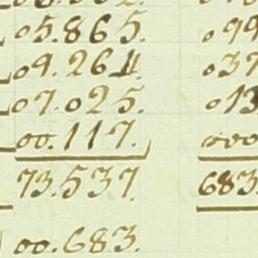 05.865. 099
09.264. 037
07.025. 013
00.117. 000
73.537 683.
00.683.